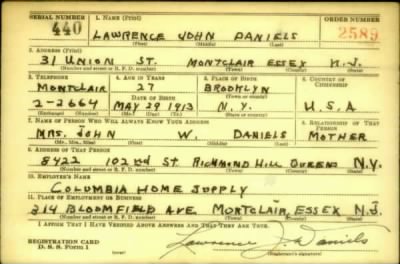 SERIAL NUMBER 1. NAME (Print) ORDER NUMBER
440 LAWRENCE JOHN DANIELS 2589
(First) (Middle) (Last)
2. ADDRESS (Print)
31 UNION ST. MONTCLAIR ESSEX N.J.
(Number and street or R. F. D. number) (Town) (County) (State)
3. TELEPHONE 4. AGE IN YEARS 5. PLACE OF BIRTH 6. COUNTRY OF CITIZENSHIP
MONTCLAIR 27 BROOKLYN
DATE OF BIRTH (Town or county)
2-2664 MAY 29 1913 N.Y. U.S.A
(Exchange) (Number) (Mo.) (Day) (Yr.) (State or country)
7. NAME OF PERSON WHO WILL ALWAYS KNOW YOUR ADDRESS 8. RELATIONSHIP OF THAT PERSON
MRS. JOHN W. DANIELS MOTHER
(Mr., Mrs., Miss) (First) (Middle) (Last)
9. ADDRESS OF THAT PERSON
8422 102nd ST RICHMOND HILL QUEENS N.Y.
(Number and street or R. F. D. number) (Town) (County) (State)
10. EMPLOYER'S NAME
COLUMBIA HOME SUPPLY
11. PLACE OF EMPLOYMENT OR BUSINESS
314 BLOOMFIELD AVE MONTCLAIR, ESSEX N.J.
(Number and street or R. F. D. number) (Town) (County) (State)
I AFFIRM THAT I HAVE VERIFIED ABOVE ANSWERS AND THAT THEY ARE TRUE.
REGISTRATION CARD
D. S. S. Form 1
Lawrence J. Daniels
(Registrant's signature)